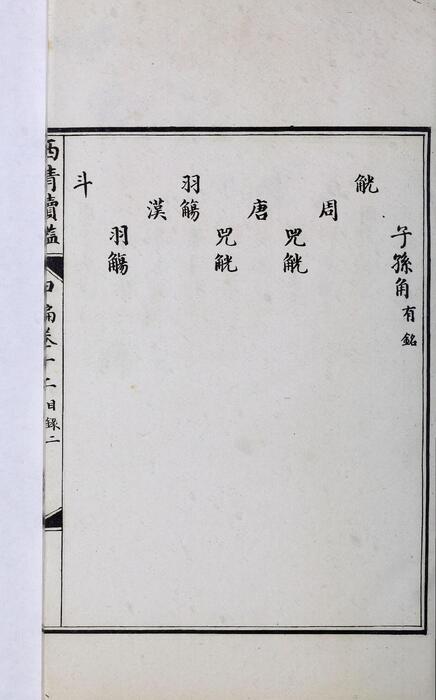 子孫角有銘
觥
周
兕觥
唐
兕觥
羽觴
漢
羽觴
斗
西清續鑑
甲編卷十二目錄二